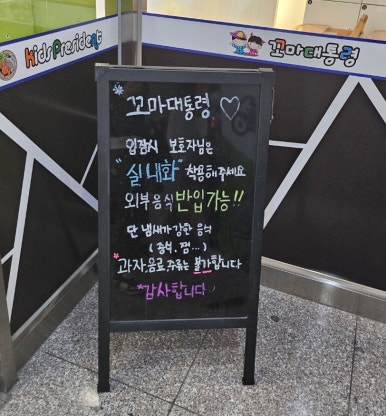 Kids President
꼬마대통령
꼬마대통령♡
입장시 보호자님은
"실내화" 착용해주세요
외부음식 반입가능!!
단 냄새가 강한 음식
(중식·찜...)
*과자·음료 주류는 불가합니다
*감사합니다